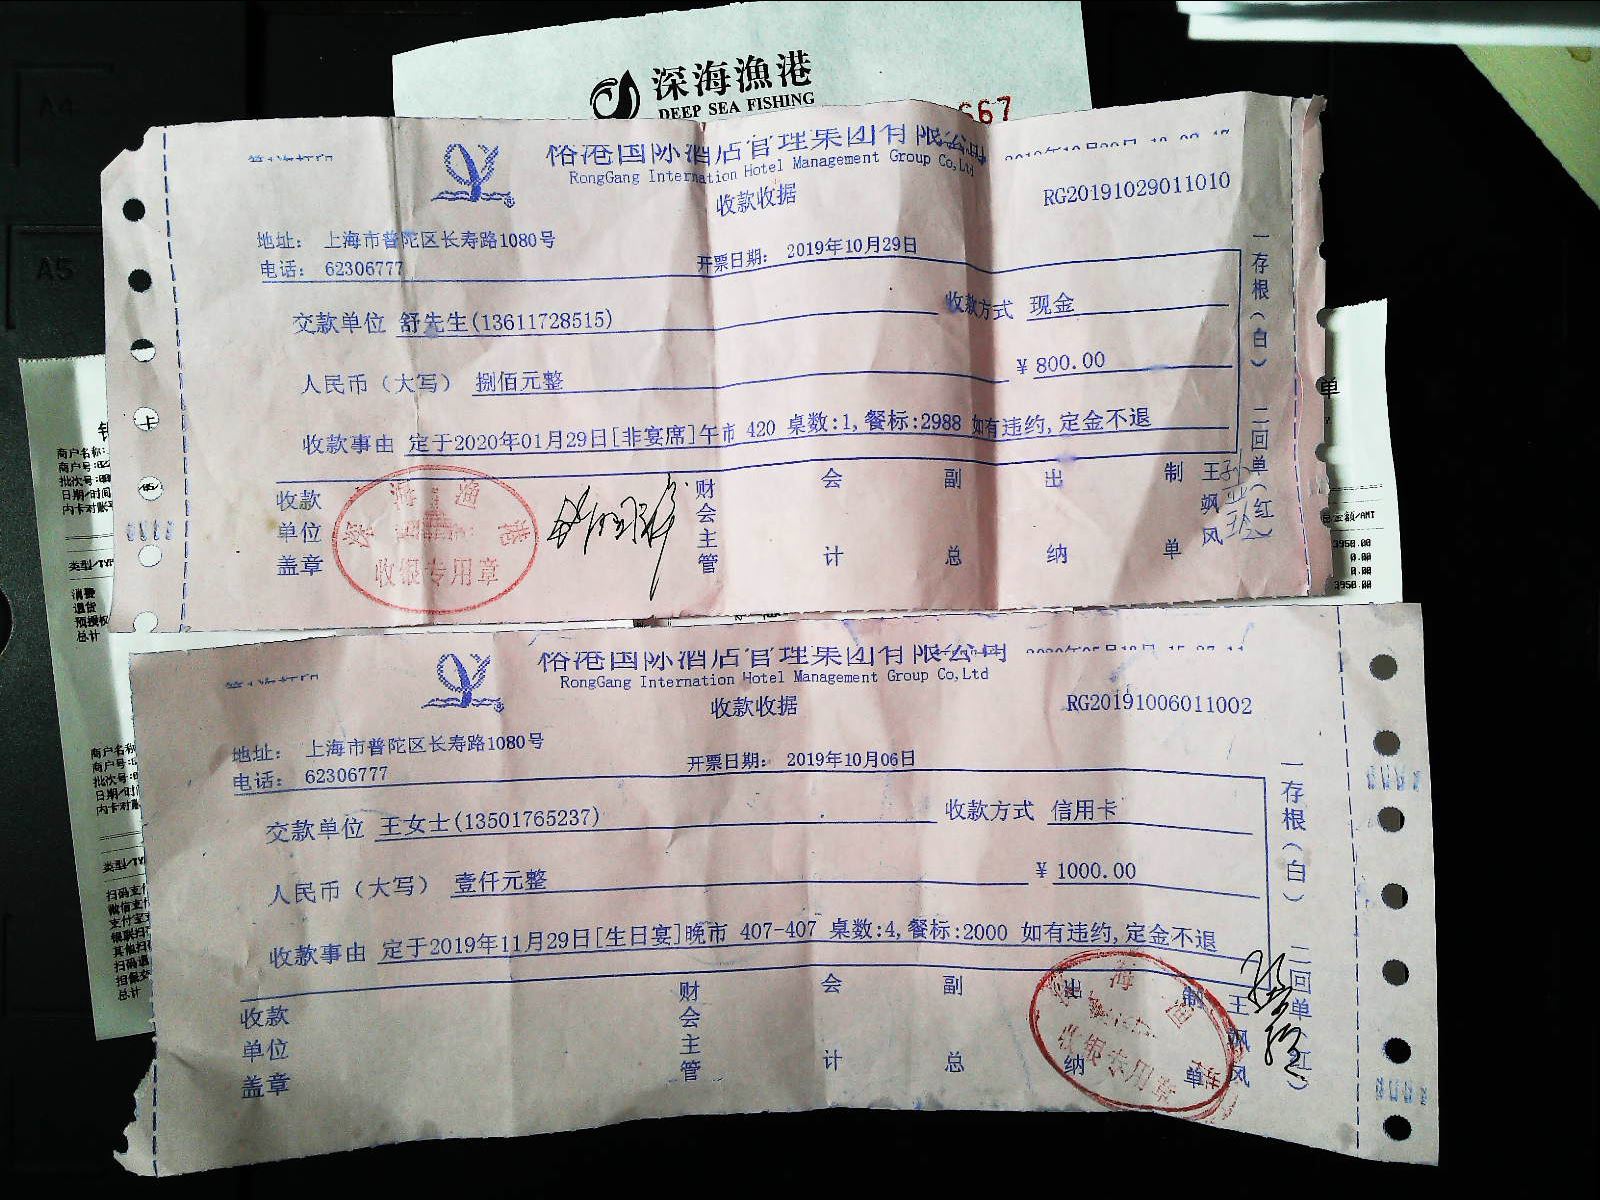 深海漁港
DEEP SEA FISHING
667
裕港国际酒店管理集团有限公司
RongGang Internation Hotel Management Group Co,Ltd
收款收据
RG20191029011010
地址： 上海市普陀区长寿路1080号
电话： 62306777
开票日期： 2019年10月29日
交款单位 舒先生(13611728515)
收款方式 现金
人民币（大写） 捌佰元整
¥ 800.00
收款事由 定于2020年01月29日[非宴席]午市 420 桌数:1,餐标:2988 如有违约,定金不退
收款单位盖章
财会主管
会计
副总
出纳
制单
王飒风
一存根（白） 二回单（红）
收银专用章
裕港国际酒店管理集团有限公司
RongGang Internation Hotel Management Group Co,Ltd
收款收据
RG20191006011002
地址： 上海市普陀区长寿路1080号
电话： 62306777
开票日期： 2019年10月06日
交款单位 王女士(13501765237)
收款方式 信用卡
人民币（大写） 壹仟元整
¥ 1000.00
收款事由 定于2019年11月29日[生日宴]晚市 407-407 桌数:4,餐标:2000 如有违约,定金不退
收款单位盖章
财会主管
会计
副总
出纳
制单
王飒风
一存根（白） 二回单（红）
收银专用章
商户名称
商户号
批次号
日期/时间
类型/TYP
消费
退货
总计
总金额/AMT
3950.00
0.00
0.00
3950.00
单
A4
A5